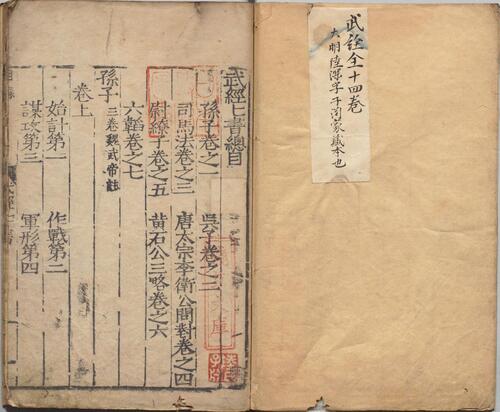 武詮全十四卷
武經七書總目
孫子卷之一 吳子卷之二
司馬法卷之三 唐太宗李衛公問對卷之四
尉繚子卷之五 黄石公三略卷之六
六韜卷之七
孫子 三卷魏武帝註
卷上
始計第一 作戰第二
謀攻第三 軍形第四